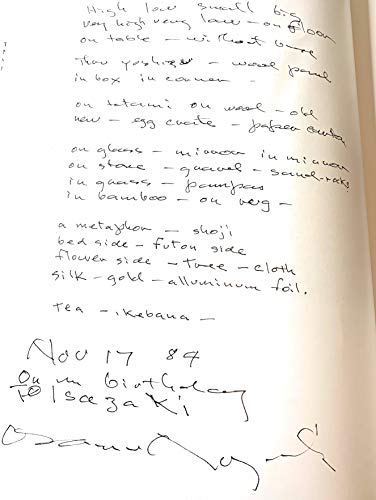 High low small big
very high very low - on floon
on table - without base
wood panel
in box in corner -
on tatami on wood - old
new - egg crate - paper
on glass - mirror in mirror
on stone - gravel - sand-rocks
in grass - pampas
in bamboo - on
a metaphor - shoji
bed side - futon side
flower side - tree - cloth
silk - gold - alluminum foil.
tea - ikebana -
Nov 17 84
On birthday
To Isozaki